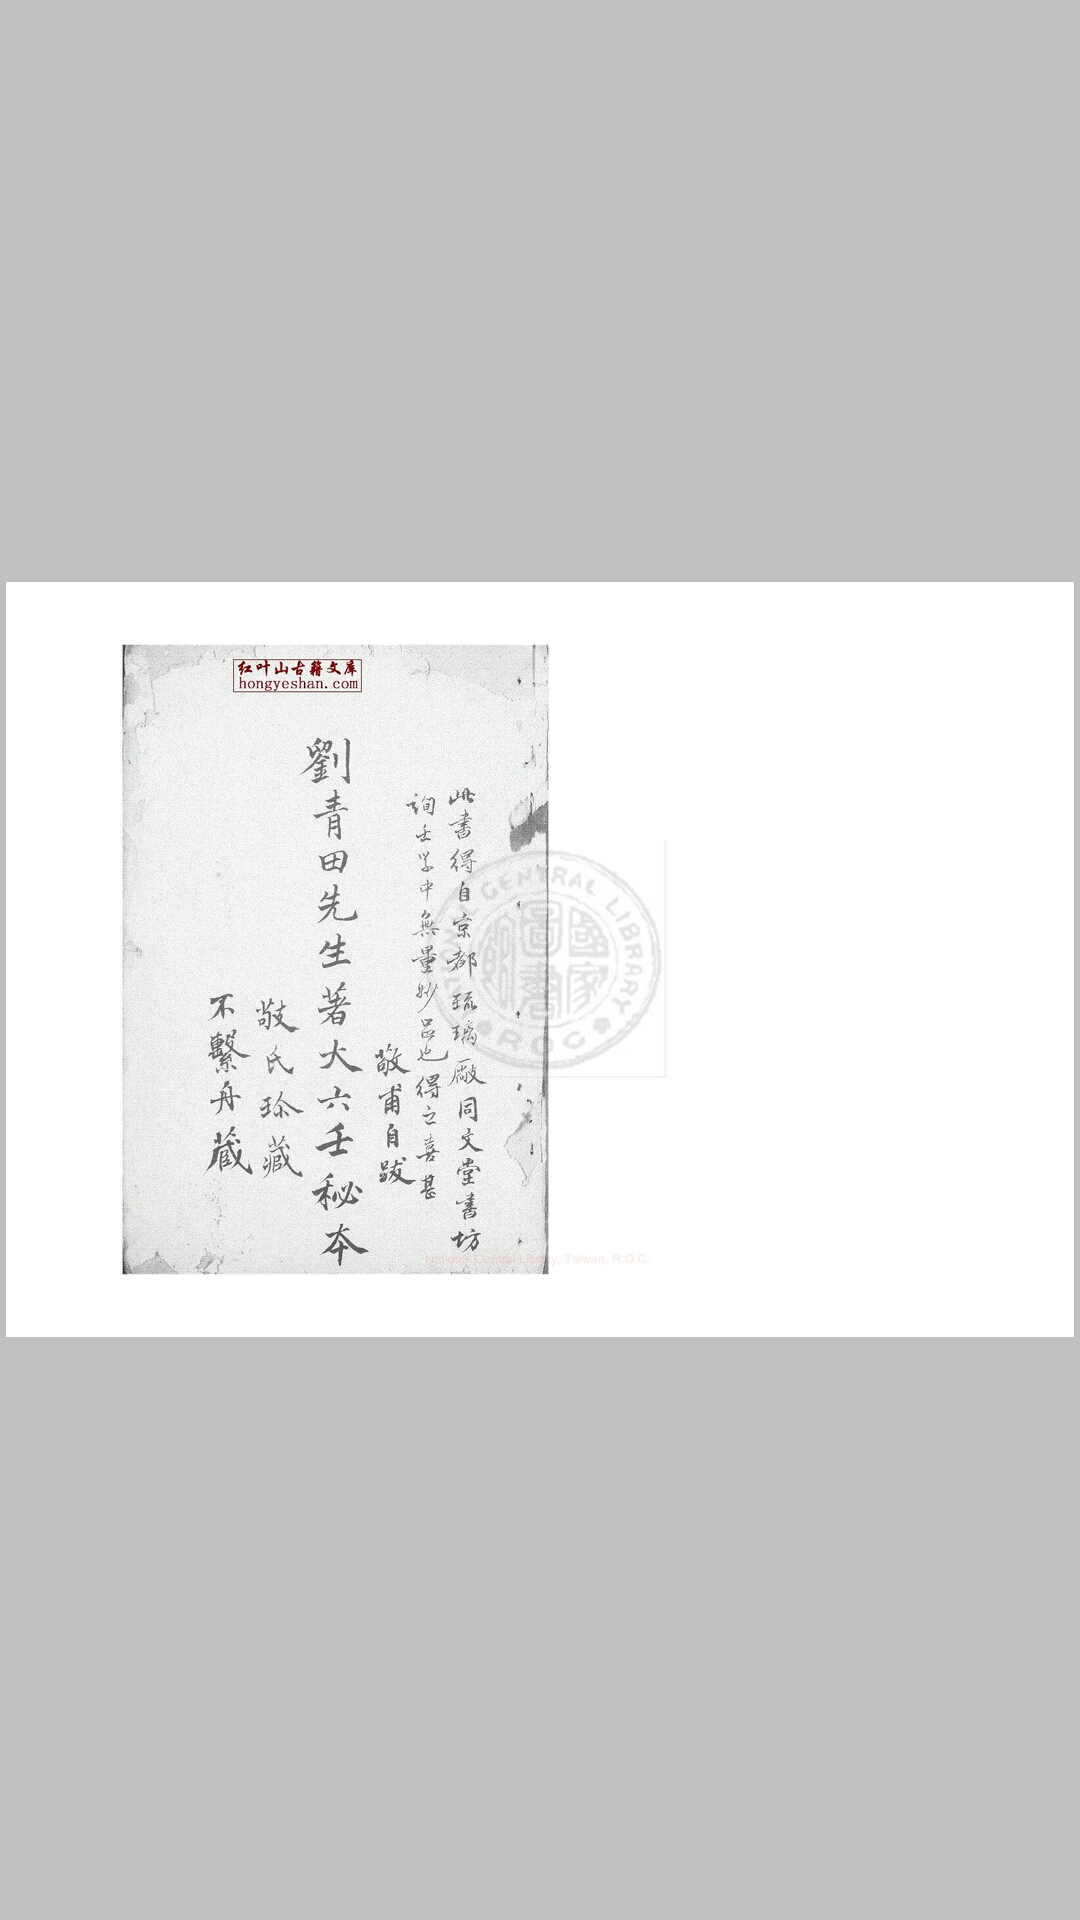 红叶山古籍文库
hongyeshan.com
此書得自京都琉璃厰同文堂書坊
詢壬学中無量妙品也得之喜甚
敬甫自跋
劉青田先生著大六壬秘本
敬氏珍藏
不繫舟藏
NATIONAL CENTRAL LIBRARY
R.O.C
國家圖書館
National Central Library, Taiwan, R.O.C.